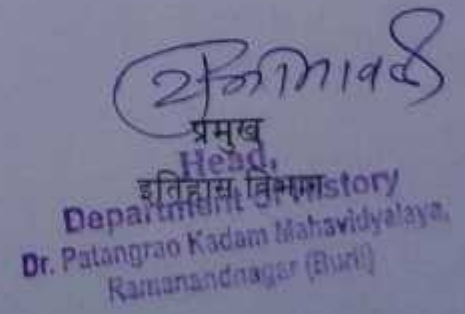 प्रमुख
Head,
इतिहास विभाग
Department of History
Dr. Patangrao Kadam Mahavidyalaya,
Ramanandnagar (Burli)